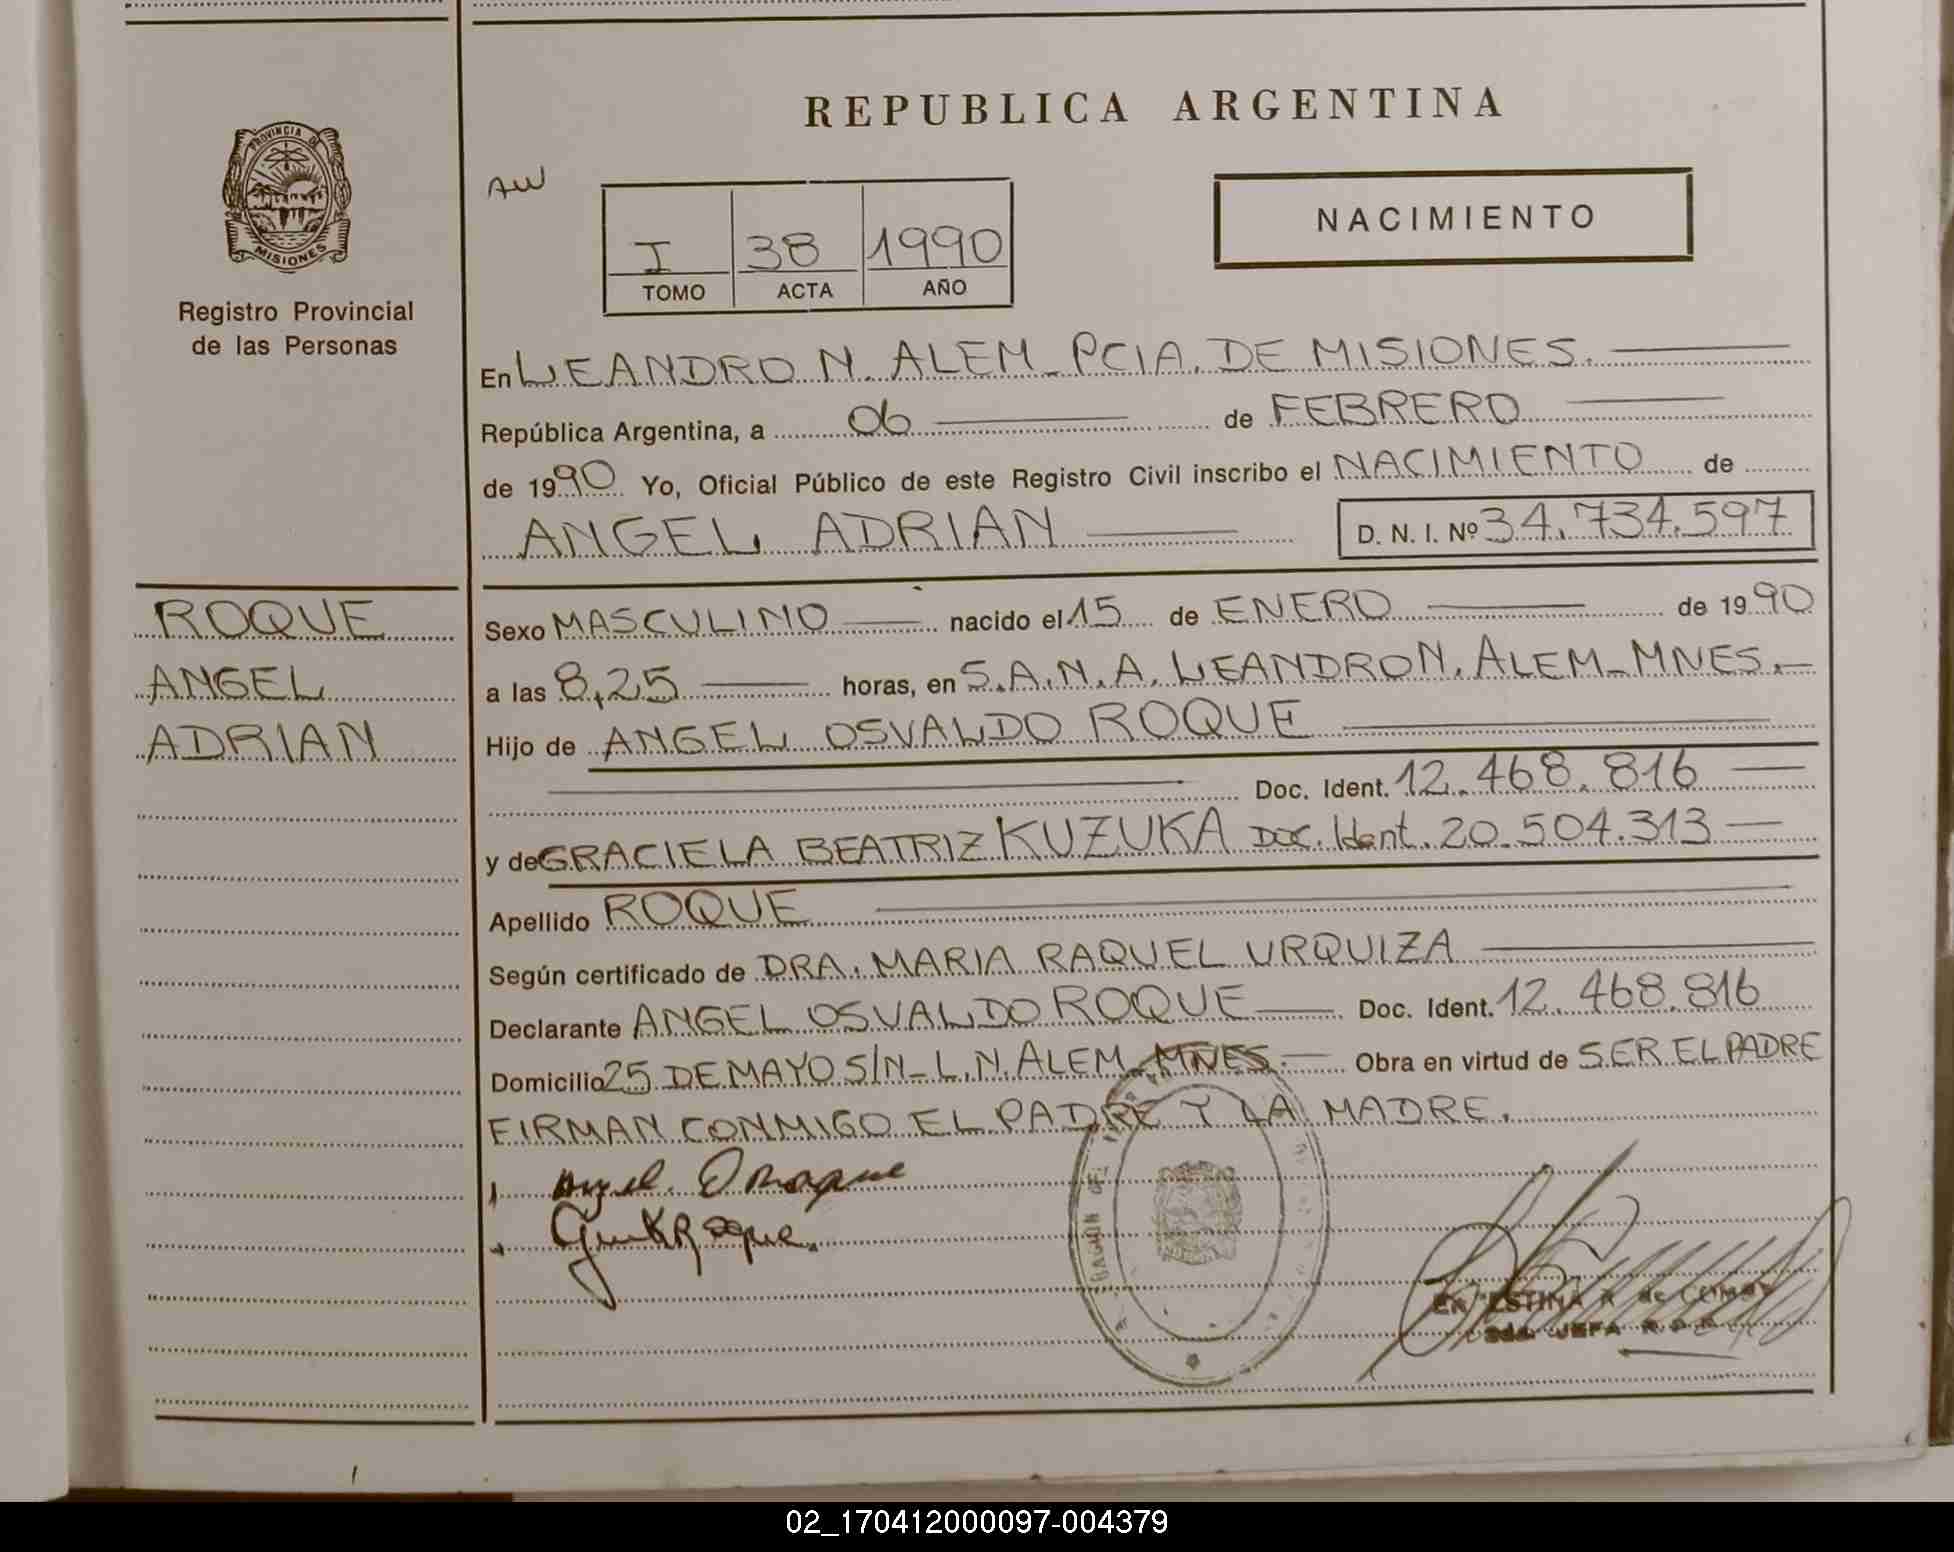 REPUBLICA ARGENTINA
PROVINCIA DE
MISIONES
Registro Provincial
de las Personas
AW
I 38 1990
TOMO ACTA AÑO
NACIMIENTO
En LEANDRO N. ALEM_PCIA. DE MISIONES.
República Argentina, a 06 de FEBRERO
de 1990 Yo, Oficial Público de este Registro Civil inscribo el NACIMIENTO de
ANGEL ADRIAN D. N. I. Nº 34.734.597
ROQUE
ANGEL
ADRIAN
Sexo MASCULINO nacido el 15 de ENERO de 1990
a las 8,25 horas, en S.A.N.A. LEANDRO N. ALEM_MNES.
Hijo de ANGEL OSVALDO ROQUE
Doc. Ident. 12.468.816
y de GRACIELA BEATRIZ KUZUKA Doc. Ident. 20.504.313
Apellido ROQUE
Según certificado de DRA. MARIA RAQUEL URQUIZA
Declarante ANGEL OSVALDO ROQUE Doc. Ident. 12.468.816
Domicilio 25 DE MAYO S/N_L.N. ALEM_MNES. Obra en virtud de SER EL PADRE
FIRMAN CONMIGO EL PADRE Y LA MADRE.
Angel O Roque
Roque
JEFA
02_170412000097-004379